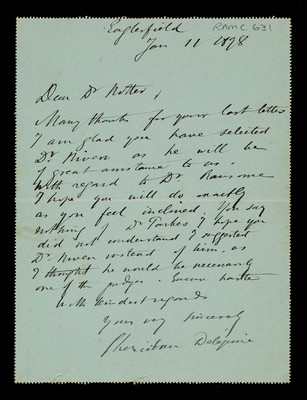 Englesfield
RAMC 631
Jan 11 1898
Dear Dr Notter,
Many thanks for your last letter
I am glad you have selected
Dr Niven as he will be
of great assistance to us.
With regard to Dr Ransome
I hope you will do exactly
as you feel inclined. You say
nothing of Dr Forbes I hope you
did not understand I suggested
Dr Niven instead of him, as
I thought he would be necessarily
one of the judges. Excuse haste
with kindest regards
Yours very sincerely
Sheridan Delépine